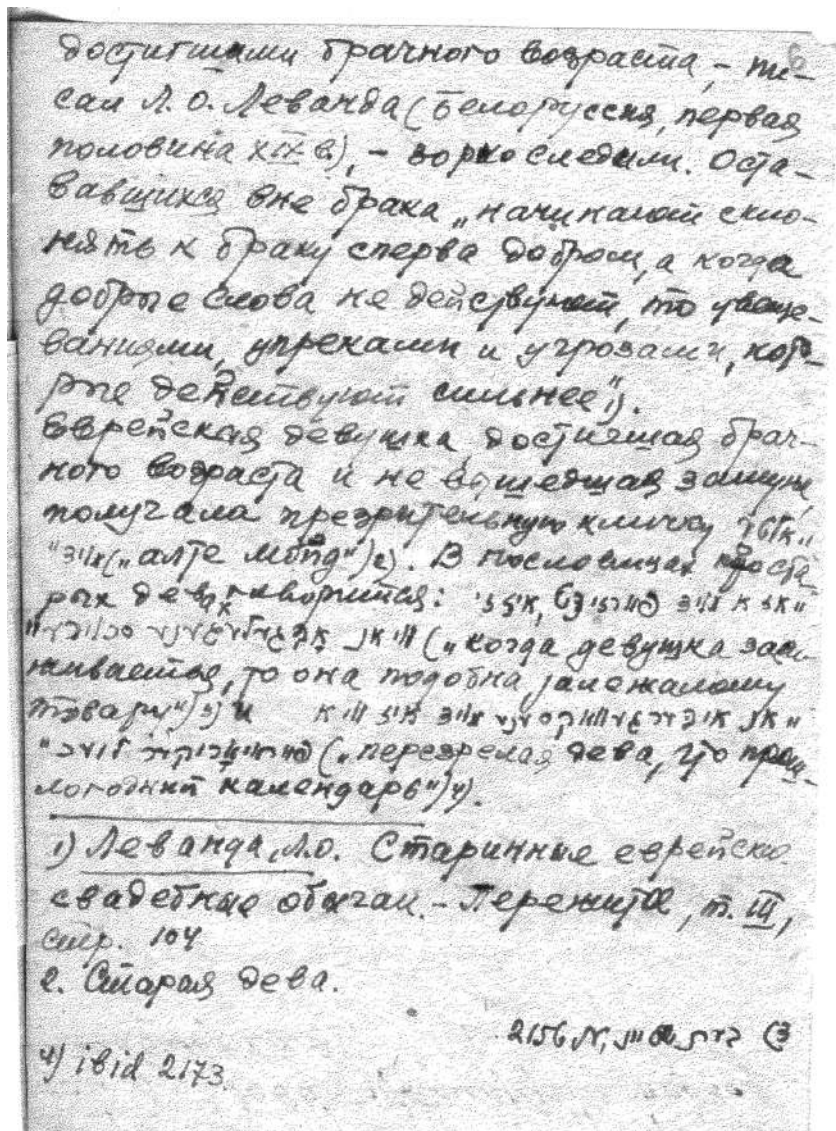 6
достигшими брачного возраста, – пи-
сал Л. О. Леванда (Белоруссия, первая
половина XIX в.), – зорко следили. Оста-
вавшихся вне брака „начинают скло-
нять к браку сперва добром, а когда
добрые слова не действуют, то увеще-
ваниями, упреками и угрозами, кото-
рые действуют сильнее"1).
Еврейская девушка, достигшая брач-
ного возраста и не вышедшая замуж,
получала презрительную кличку „אלטע
מויד" („алте мойд")2). В пословицах
рых девах говорится: „אז א מויד פארזיצט, איז זי
ווי אן („когда девушка заси-
живается, то она подобна залежалому
товару")3) и „אן איבערגעוואקסענע מויד איז ווי א
לוח" („перезрелая дева, что прош-
логодний календарь")4).
1) Леванда, Л.О. Старинные еврейские
свадебные обычаи. – Пережитое, т. III,
стр. 104
2. Старая дева.
3) 2156 №
4) ibid 2173.